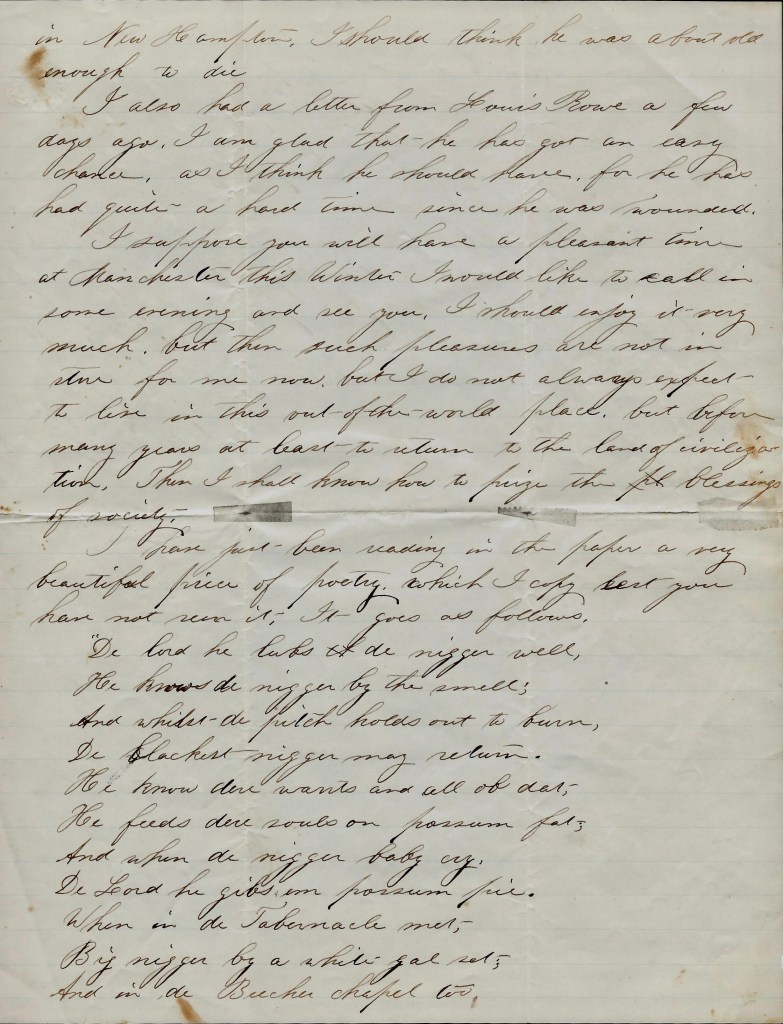 in New Hampton. I should think he was about old
enough to die
I also had a letter from Louis Rowe a few
days ago. I am glad that he has got an easy
chance, as I think he should have, for he has
had quite a hard time since he was wounded.
I suppose you will have a pleasant time
at Manchester this Winter I would like to call in
some evening and see you. I should enjoy it very
much. but then such pleasures are not in
store for me now. but I do not always expect
to live in this out-of-the-world place. but before
many years at least to return to the land of civiliza-
tion. Then I shall know how to prize the blessings
of society.
I have just been reading in the paper a very
beautiful piece of poetry. which I copy lest you
have not seen it. It goes as follows.
"De lord he lubs de nigger well,
He knows de nigger by the smell;
And whilst de pitch holds out to burn,
De blackest nigger may return.
He know dere wants and all ob dat;
He feeds dere souls on possum fat;
And when de nigger baby cry.
De Lord he gibs em possum pie.
When in de Tabernacle met,
Big nigger by a white gal set;
And in de Beecher chapel too,